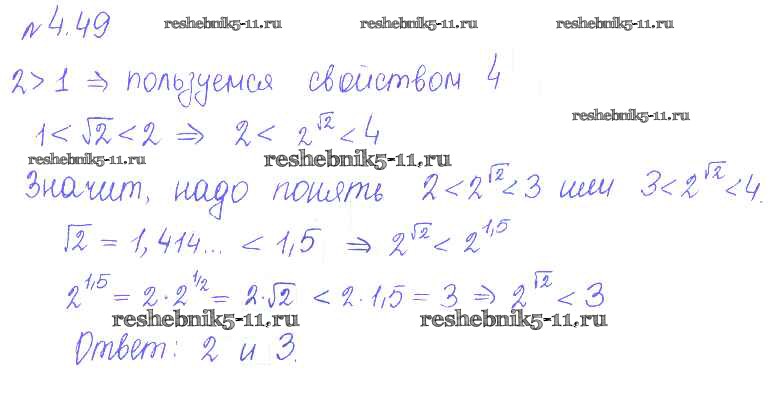 № 4.49 reshebnik5-11.ru reshebnik5-11.ru reshebnik5-11.ru
2 > 1 ⇒ пользуемся свойством 4
reshebnik5-11.ru
1 < √2 < 2 ⇒ 2 < 2^√2 < 4
reshebnik5-11.ru reshebnik5-11.ru
Значит, надо понять 2 < 2^√2 < 3 или 3 < 2^√2 < 4.
√2 = 1,414... < 1,5 ⇒ 2^√2 < 2^1,5
2^1,5 = 2 · 2^1/2 = 2·√2 < 2·1,5 = 3 ⇒ 2^√2 < 3
reshebnik5-11.ru reshebnik5-11.ru
Ответ: 2 и 3.